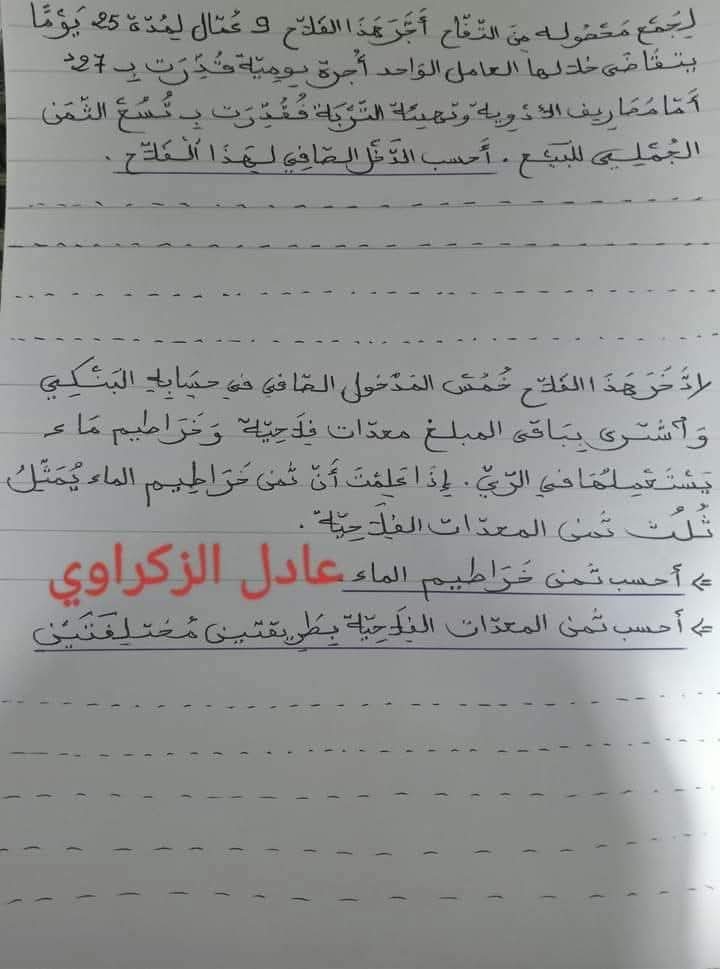 لِجَمْعِ مَحْصُولِهِ مِنَ التُّفَّاحِ أَجَّرَ هَذَا الفَلَّاحُ 9 عُمَّالٍ لِمُدَّةِ 25 يَوْمًا
يتقاضى خلالها العامل الواحد أُجرة يوميّة قُدِّرَت بِـ 27د
أمّا مصاريف الأدوية وتهيئة التّربة فقُدِّرَت بـ تُسُعِ الثّمن
الجُمْلِيِّ للبَيْعِ . أحسب الدّخل الصّافي لهذا الفلاّح .
لادَّخَرَ هَذَا الفلاّح خُمُسَ المدخول الصّافي في حسابه البَنْكِي
وَٱشْتَرى بِبَاقي المبلغ معدّات فلاحيّة وَخَرَاطيم ماء
يَسْتَعْمِلُهَا في الرّيّ . إذا عَلِمْتَ أَنّ ثمن خَرَاطِيم الماء يُمَثِّلُ
ثُلُث ثمن المعدّات الفلاحيّة .
⇐ أحسب ثمن خَرَاطيم الماء عادل الزكراوي
⇐ أحسب ثمن المعدّات الفلاحيّة بِطَرِيقتين مُختلِفَتَيْنِ